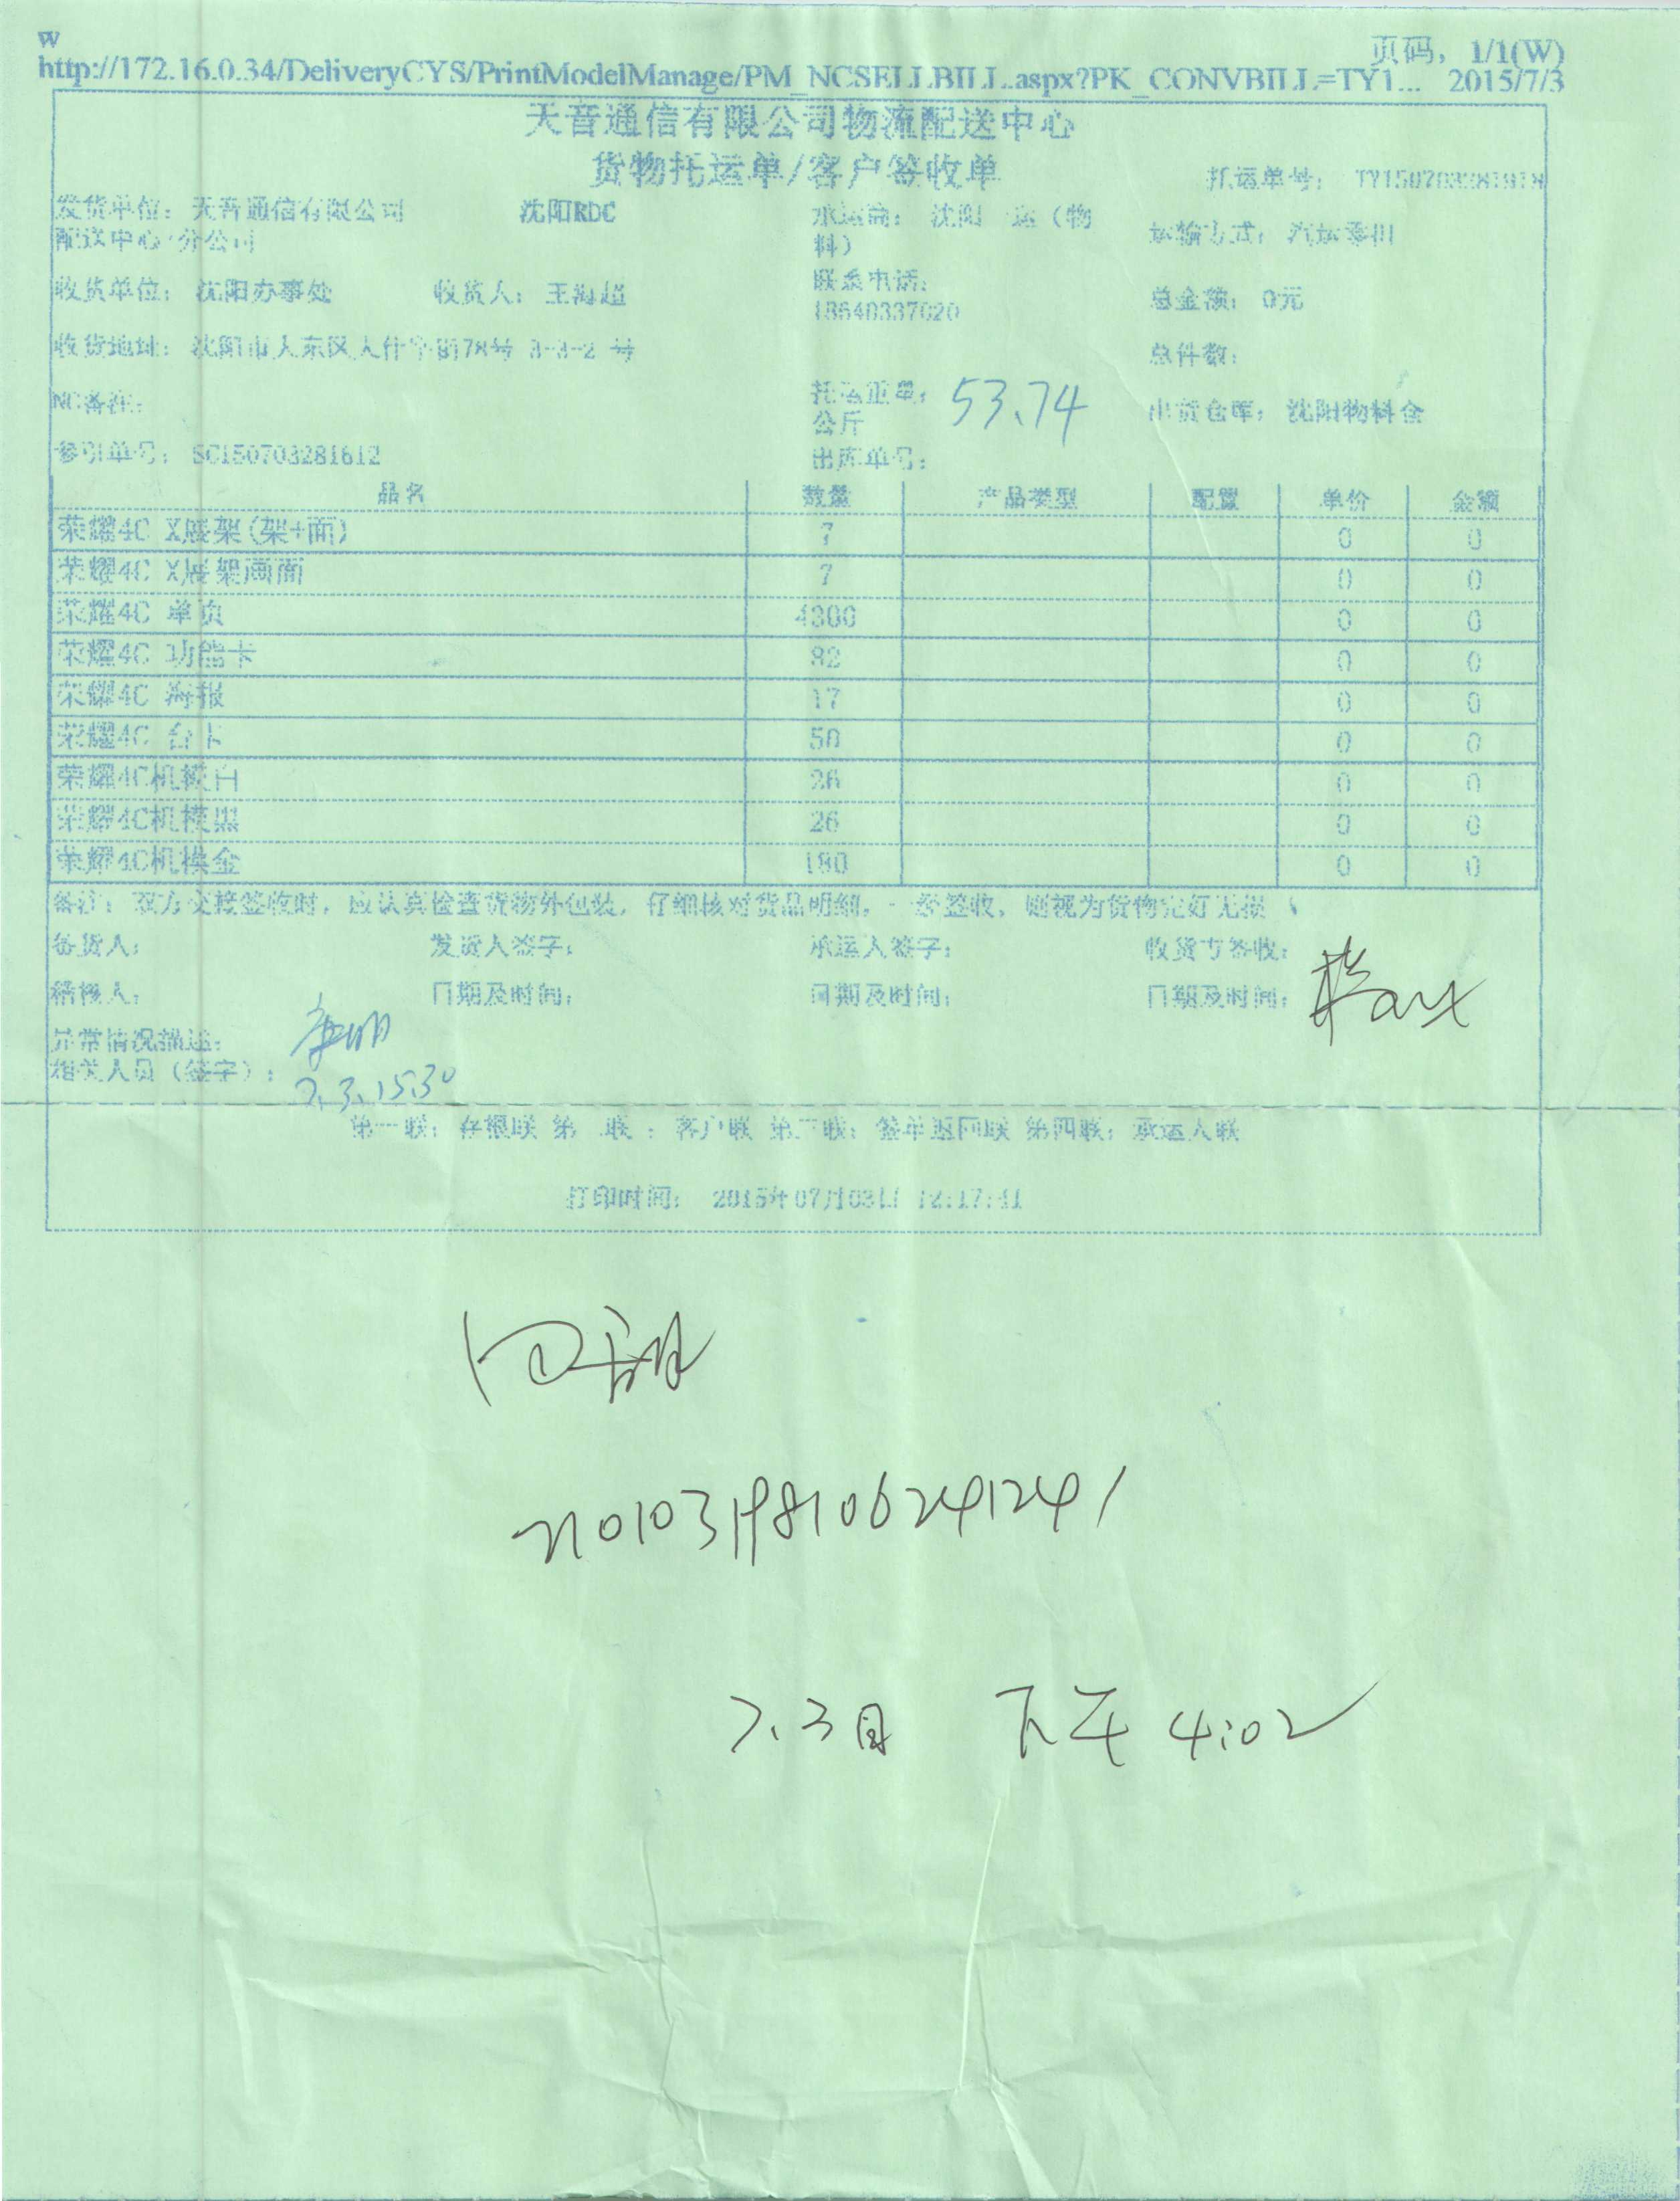 w
页码，1/1(W)
http://172.16.0.34/DeliveryCYS/PrintModelManage/PM_NCSELLBILL.aspx?PK_CONVBILL=TY1... 2015/7/3
天音通信有限公司物流配送中心
货物托运单/客户签收单
托运单号： TY150703281918
发货单位：天音通信有限公司 沈阳RDC
配送中心/分公司
承运商：沈阳 运（物
料）
运输方式：汽运零担
收货单位：沈阳办事处 收货人：王海超
联系电话：
18640337020
总金额：0元
收货地址：沈阳市大东区大什字街78号 3-3-2 号
总件数：
NC备注：
托运重量： 53.74
公斤
出货仓库：沈阳物料仓
参引单号：SC150703281612
出库单号：
品名 数量 产品类型 配置 单价 金额
荣耀4C X展架(架+面) 7 0 0
荣耀4C X展架画面 7 0 0
荣耀4C 单页 4300 0 0
荣耀4C 功能卡 82 0 0
荣耀4C 海报 17 0 0
荣耀4C 台卡 50 0 0
荣耀4C机模白 26 0 0
荣耀4C机模黑 26 0 0
荣耀4C机模金 180 0 0
备注：双方交接签收时，应认真检查货物外包装，仔细核对货品明细，一经签收，则视为货物完好无损
备货人： 发货人签字： 承运人签字： 收货方签收：
稽核人： 日期及时间： 日期及时间： 日期及时间：
异常情况描述：
相关人员（签字）：
7.3.15:30
第一联：存根联 第二联：客户联 第三联：签单返回联 第四联：承运人联
打印时间： 2015年07月03日 12:17:41
210103198106241241
7.3日 下午 4:02